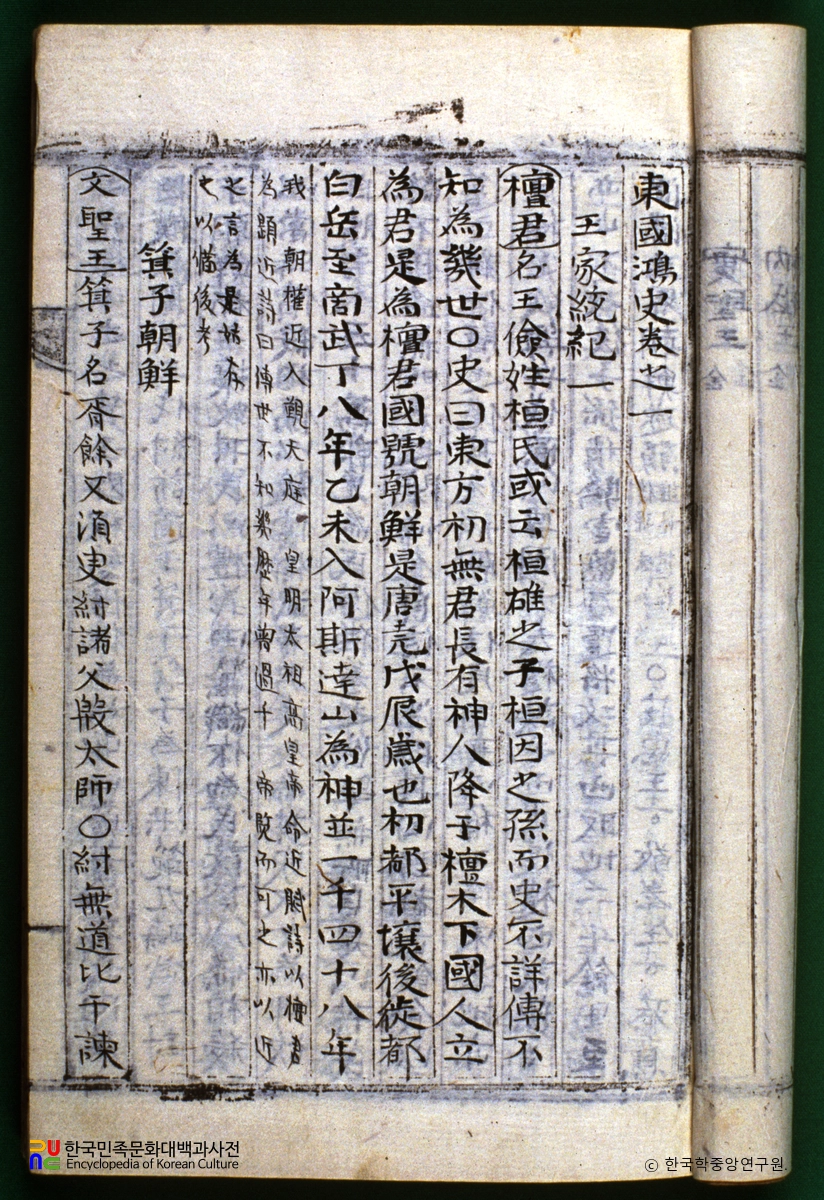 東國鴻史卷之一
王家統紀一
檀君名王儉姓桓氏或云桓雄之子桓因之孫而史不詳傳不
知為幾世〇史曰東方初無君長有神人降于檀木下國人立
為君是為檀君國號朝鮮是唐堯戊辰歲也初都平壤後徙都
白岳至商武丁八年乙未入阿斯達山為神並一千四十八年
我 朝權近入觀天庭 皇明太祖高皇帝命近賦詩以檀君
為題近詩曰傳世不知幾歷年曾過千 帝覽而可之亦以近
之言為是姑存
之以備後考
箕子朝鮮
文聖王箕子名胥餘又湏臾紂諸父殷太師〇紂無道比干諫
한국민족문화대백과사전
Encyclopedia of Korean Culture
© 한국학중앙연구원.